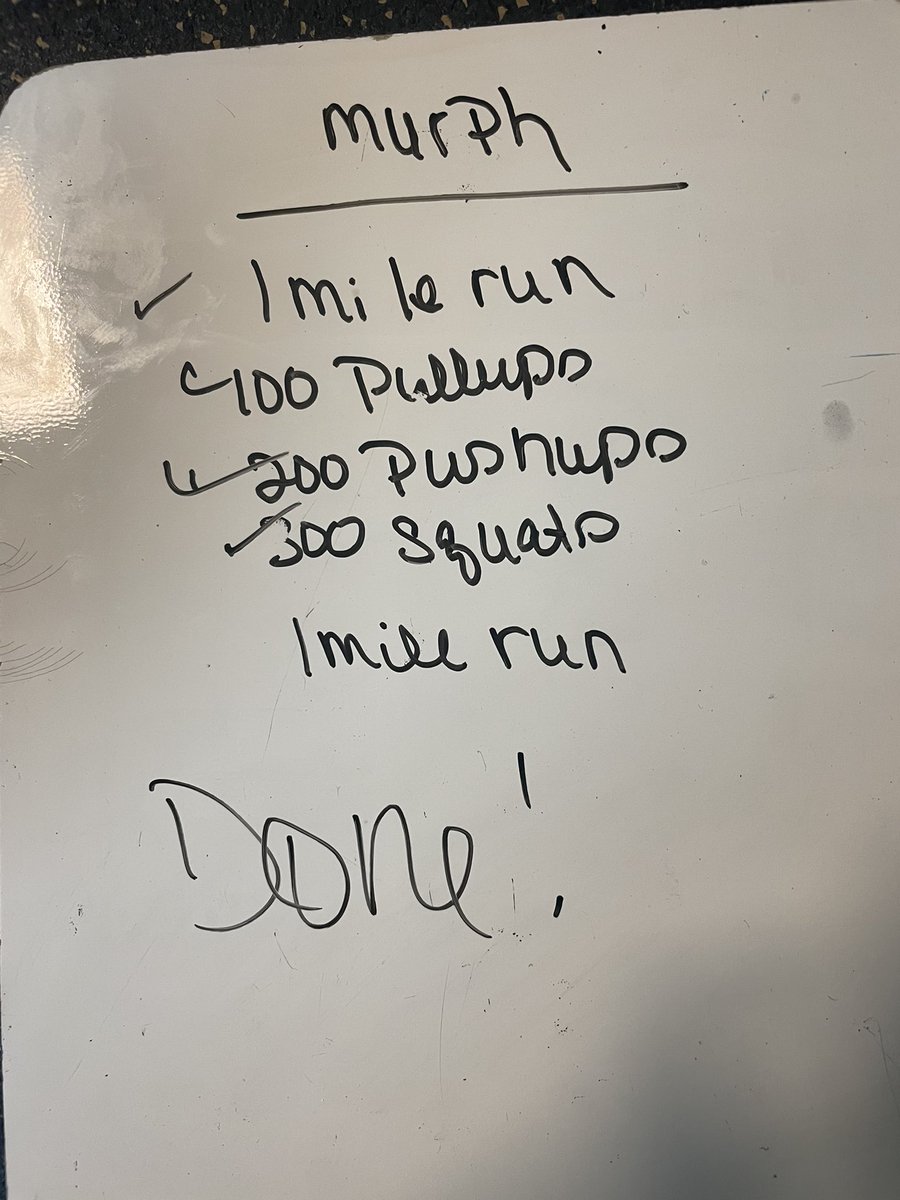 Murph
✓ 1 mile run
✓ 100 Pullups
✓ 200 Pushups
✓ 300 Squats
1 mile run
Done!